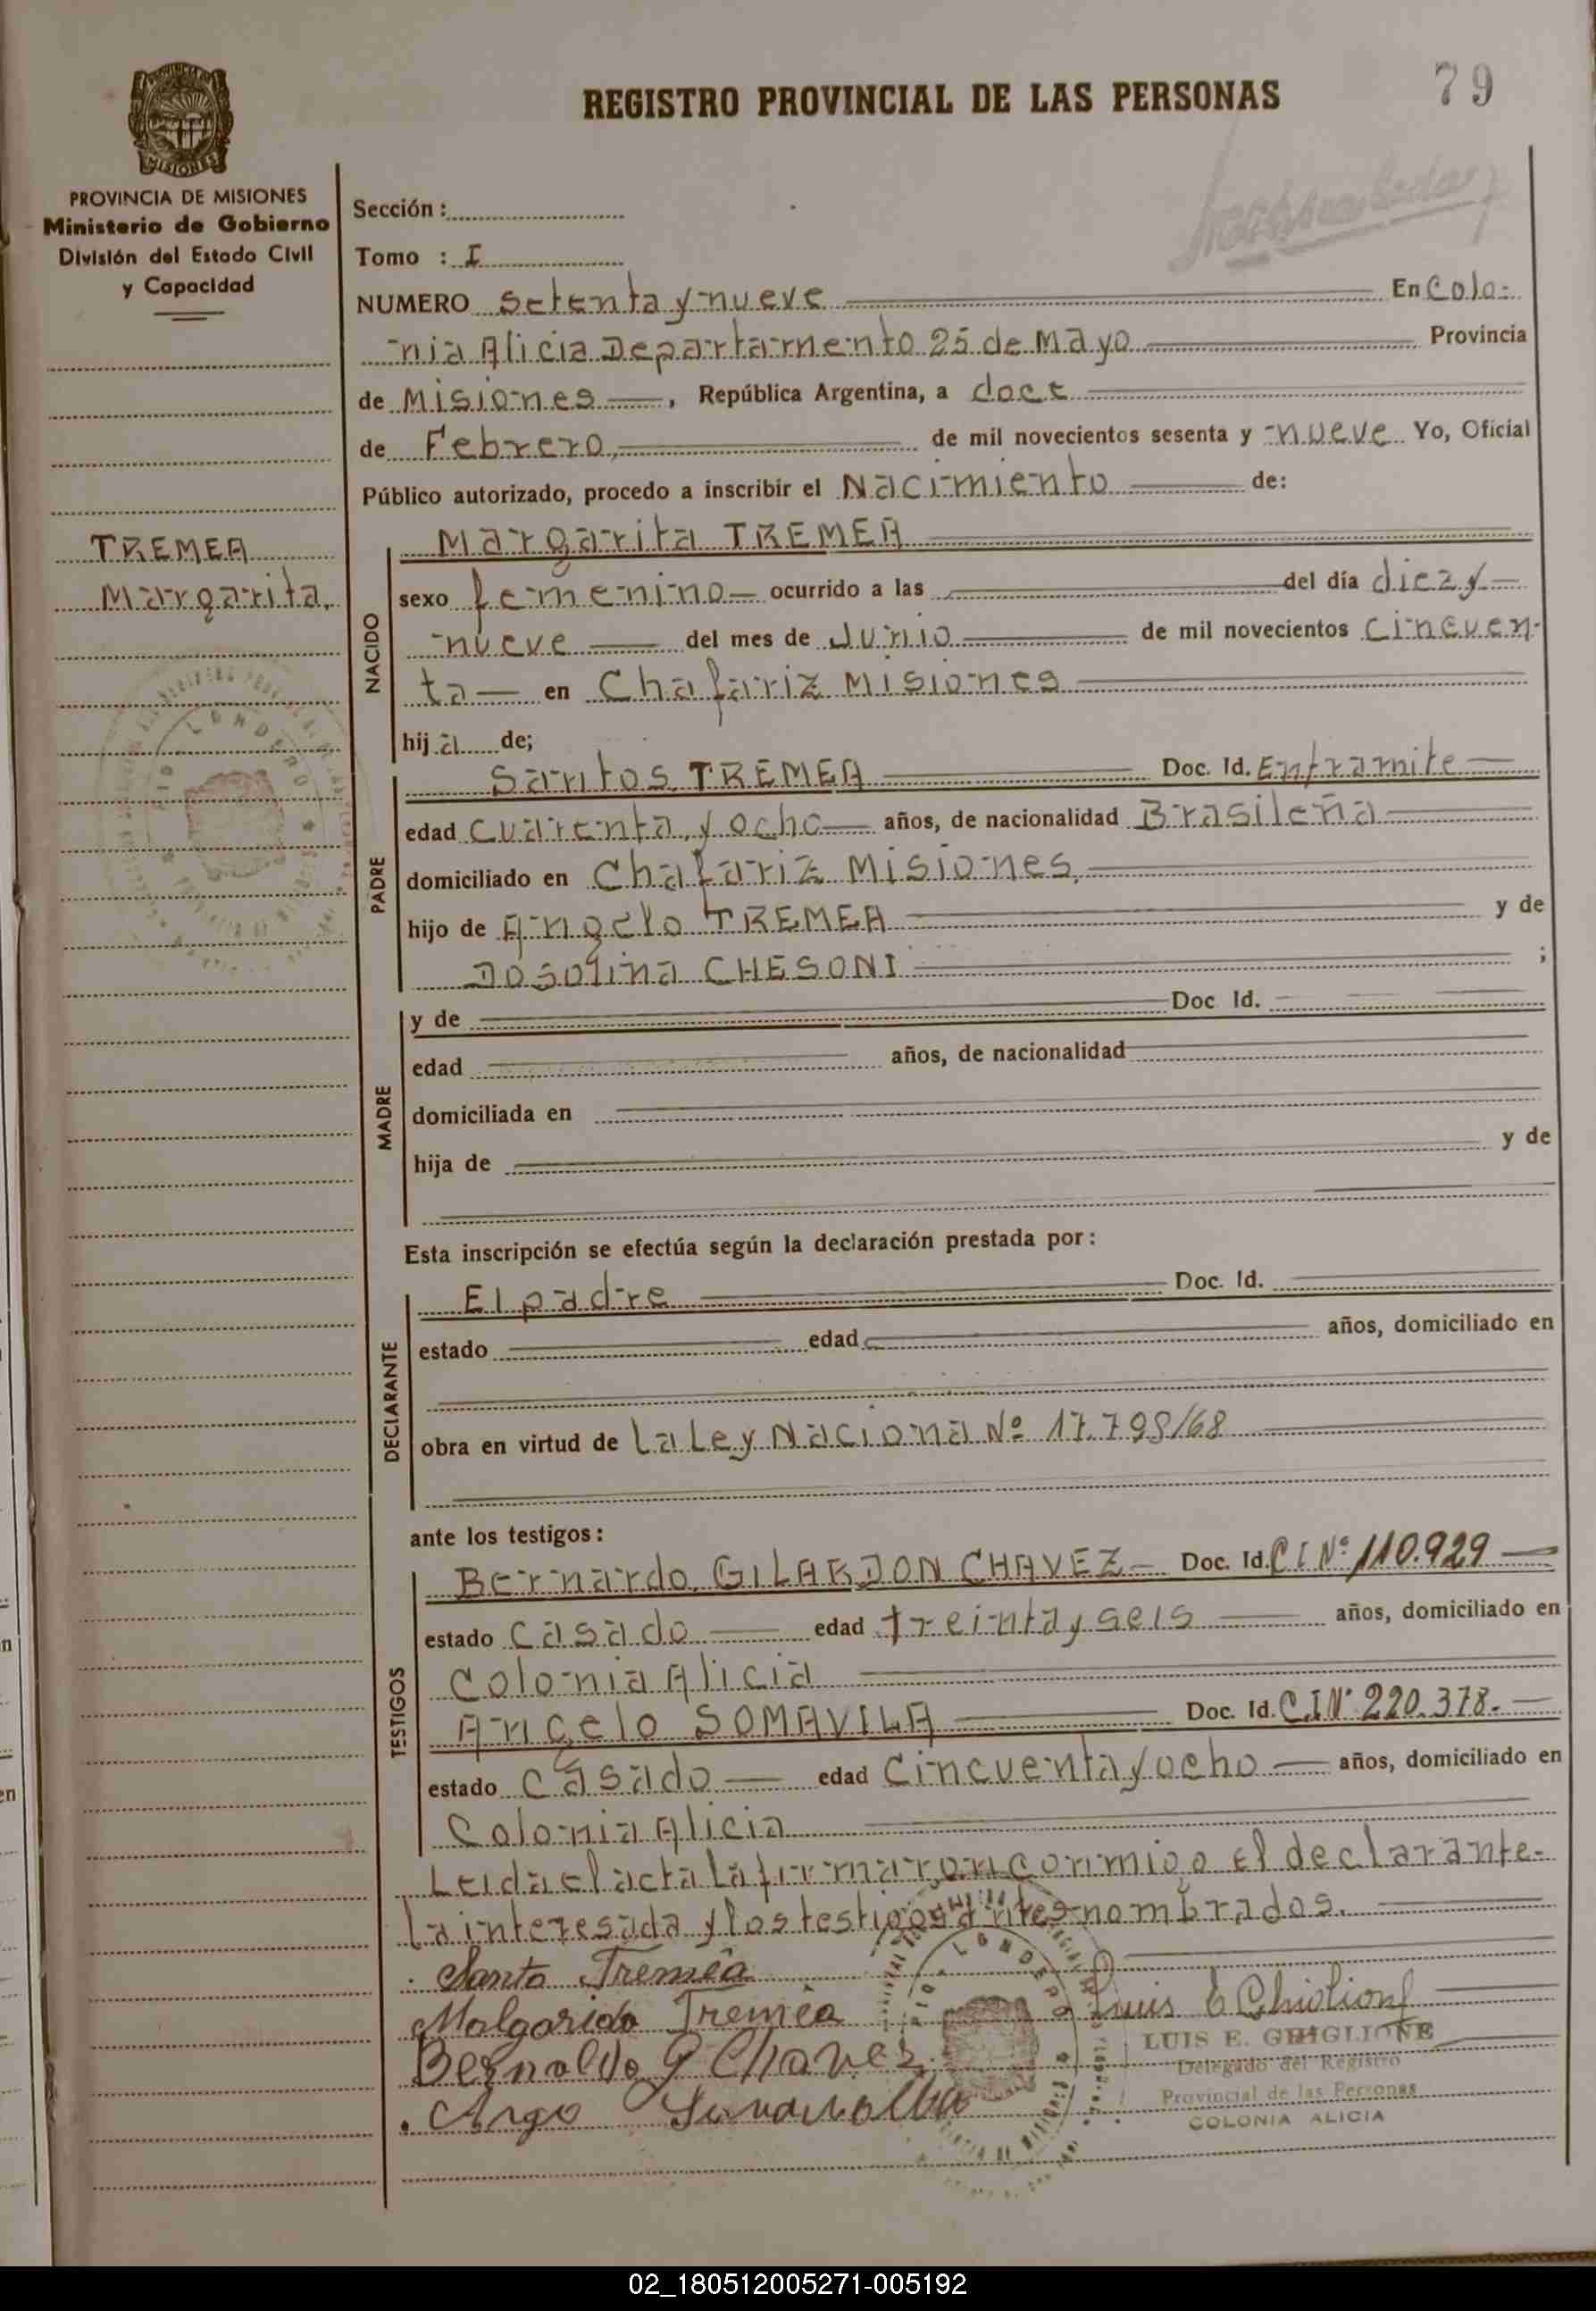 REGISTRO PROVINCIAL DE LAS PERSONAS
79
MISIONES
PROVINCIA DE MISIONES
Ministerio de Gobierno
División del Estado Civil
y Capacidad
TREMEA
Margarita,
Sección :
Tomo : I
NUMERO Setenta y nueve En Colo-
nia Alicia Departamento 25 de Mayo Provincia
de Misiones , República Argentina, a doce
de Febrero, de mil novecientos sesenta y nueve Yo, Oficial
Público autorizado, procedo a inscribir el Nacimiento de:
NACIDO
Margarita TREMEA
sexo femenino ocurrido a las del día diez y
nueve del mes de Junio de mil novecientos cincuen-
ta en Chafariz Misiones
hij a de;
PADRE
Santos TREMEA Doc. Id. En tramite
edad cuarenta y ocho años, de nacionalidad Brasileña
domiciliado en Chafariz Misiones,
hijo de Angelo TREMEA y de
Dosolina CHESONI ;
MADRE
y de Doc Id.
edad años, de nacionalidad
domiciliada en
hija de y de
Esta inscripción se efectúa según la declaración prestada por :
DECLARANTE
El padre Doc. Id.
estado edad años, domiciliado en
obra en virtud de la Ley Naciona Nº 17.798/68
ante los testigos :
TESTIGOS
Bernardo GILARDON CHAVEZ Doc. Id. C I Nº 110.929
estado casado edad treinta y seis años, domiciliado en
Colonia Alicia
Angelo SOMAVILA Doc. Id. C.I Nº 220.378.-
estado casado edad cincuenta y ocho años, domiciliado en
Colonia Alicia
Leida el acta la firmaron conmigo el declarante-
la interesada y los testigos antes nombrados.
Santo Tremêa
Malgarida Tremêa
Bernaldo G Chavez
LUIS E. GHIGLIONE
Delegado del Registro
Provincial de las Personas
COLONIA ALICIA
02_180512005271-005192